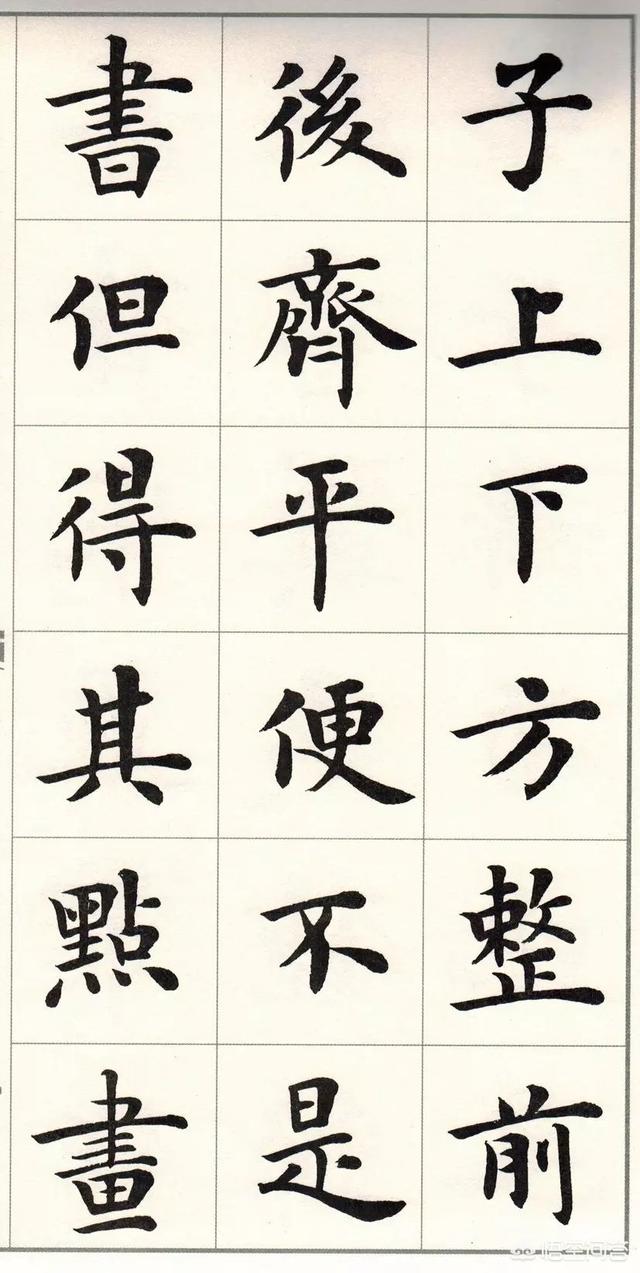 子上下方整前
後齊平便不是
書但得其點畫
悟空问答